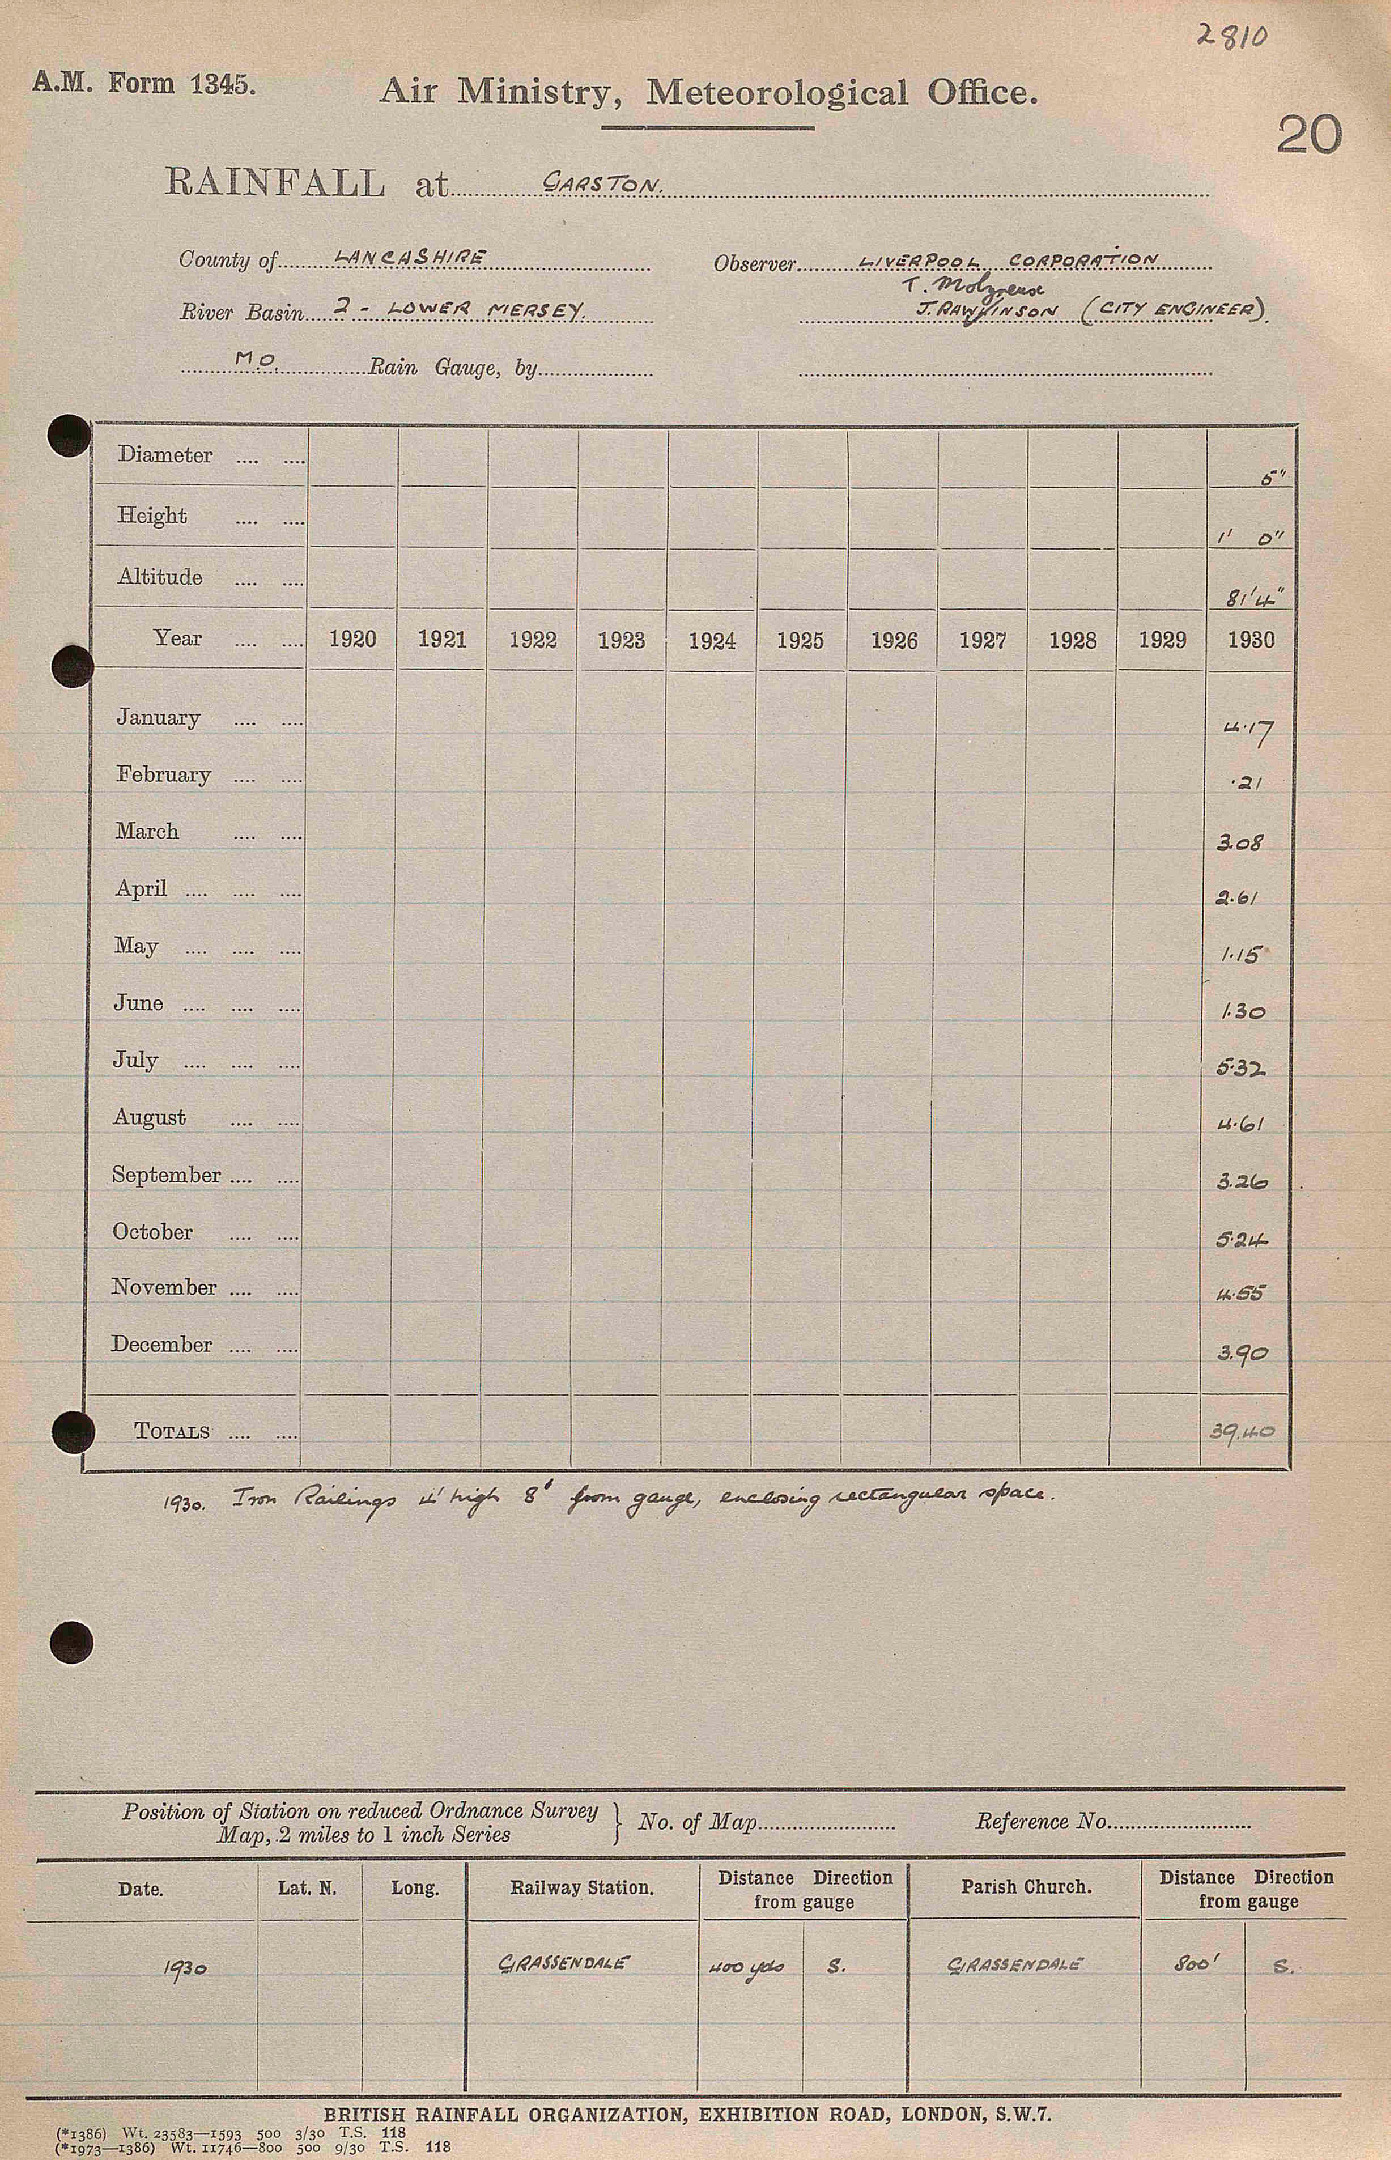 2810
A.M. Form 1345.
Air Ministry, Meteorological Office.
20
RAINFALL at GARSTON.
County of LANCASHIRE Observer LIVERPOOL CORPORATION
T. Molyneux
River Basin 2 - LOWER MERSEY. J. RAWLINSON (CITY ENGINEER).
M.O. Rain Gauge, by
Diameter 5"
Height 1' 0"
Altitude 81'4"
Year 1920 1921 1922 1923 1924 1925 1926 1927 1928 1929 1930
January 4.17
February .21
March 3.08
April 2.61
May 1.15
June 1.30
July 5.32
August 4.61
September 3.26
October 5.24
November 4.55
December 3.90
TOTALS 39.40
1930. Iron Railings 4' high 8' from gauge, enclosing rectangular space.
Position of Station on reduced Ordnance Survey
Map, 2 miles to 1 inch Series } No. of Map Reference No.
Date. Lat. N. Long. Railway Station. Distance Direction from gauge Parish Church. Distance Direction from gauge
1930 GRASSENDALE 400 yds S. GRASSENDALE 800' S.
BRITISH RAINFALL ORGANIZATION, EXHIBITION ROAD, LONDON, S.W.7.
(*1386) Wt. 23583—1593 500 3/30 T.S. 118
(*1973—1386) Wt. 11746—800 500 9/30 T.S. 118